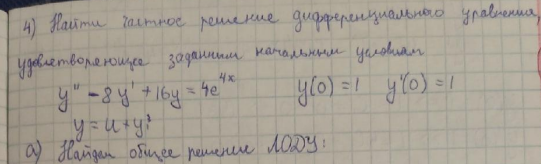 4) Найти частное решение дифференциального уравнения,
удовлетворяющее заданным начальным условиям
y'' - 8y' + 16y = 4e^{4x} y(0) = 1 y'(0) = 1
y = u + y^2
а) Найдем общее решение ЛОДУ: